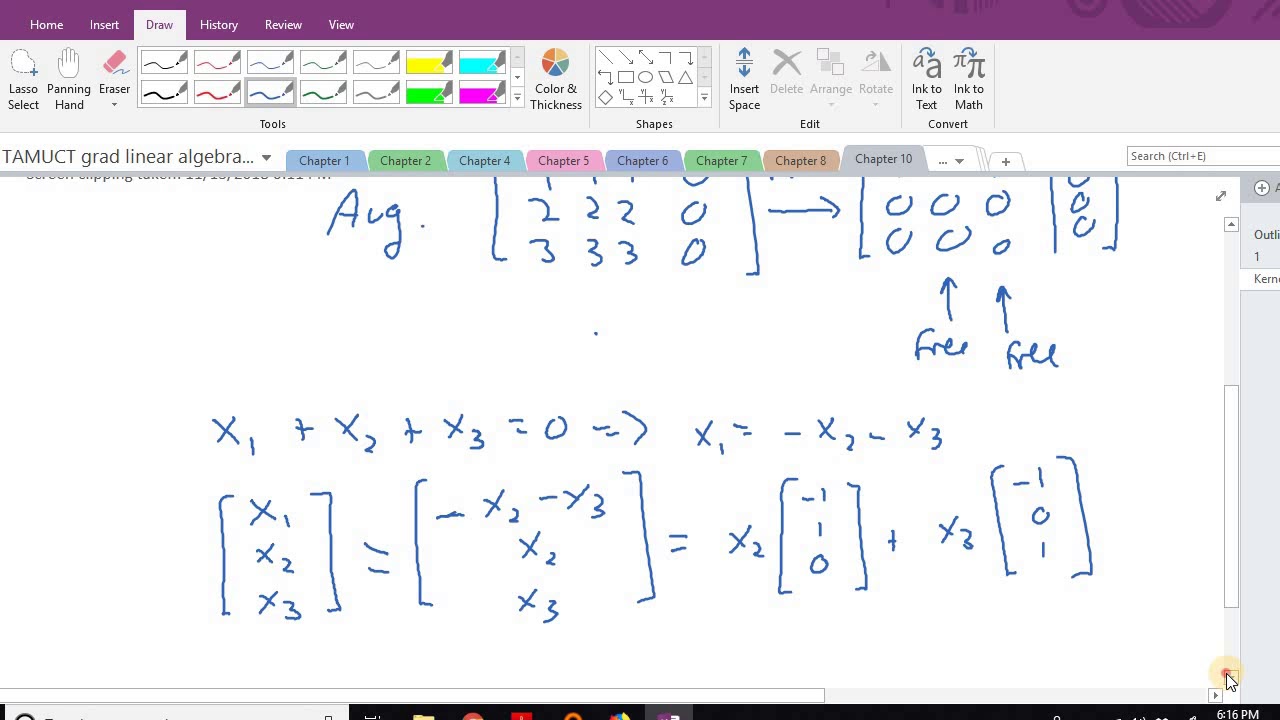 Home Insert Draw History Review View
Lasso Select
Panning Hand
Eraser
Color & Thickness
Insert Space
Delete
Arrange
Rotate
Ink to Text
Ink to Math
Tools Shapes Edit Convert
TAMUCT grad linear algebra... Chapter 1 Chapter 2 Chapter 4 Chapter 5 Chapter 6 Chapter 7 Chapter 8 Chapter 10 ... + Search (Ctrl+E)
Aug. [ 1 1 1 0 → [ 0
2 2 2 0 0 0 0 | 0
3 3 3 0 ] 0 0 0 | 0 ]
↑ ↑
free free
x₁ + x₂ + x₃ = 0 => x₁ = - x₂ - x₃
[ x₁ x₂ x₃ ] = [ - x₂ - x₃ x₂ x₃ ] = x₂ [ -1 1 0 ] + x₃ [ -1 0 1 ]
Outli
1
Kerne
6:16 PM